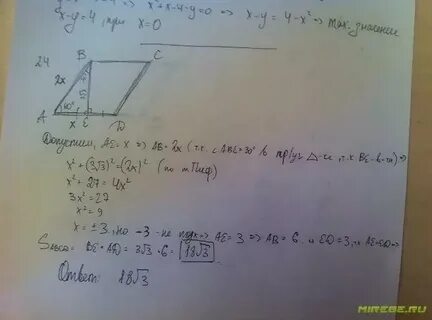 x-y=4, при x=0
x²+x-4-y=0 => x-y = 4-x² => max-значение
24
B
C
2x
3√3
60°
A
x
E
D
Допустим, AE=x => AB=2x (т.к. ∠ABE=30° в пр/уг △-ке, т.к. BE-в-та) =>
x²+(3√3)²=(2x)² (по тПиф)
x²+27=4x²
3x²=27
x²=9
x=±3, но -3-не => AE=3 => AB=6 и ED=3, т.к. AE=ED =>
S = BE·AD = 3√3·6 = 18√3
Ответ: 18√3
MIREBE.RU